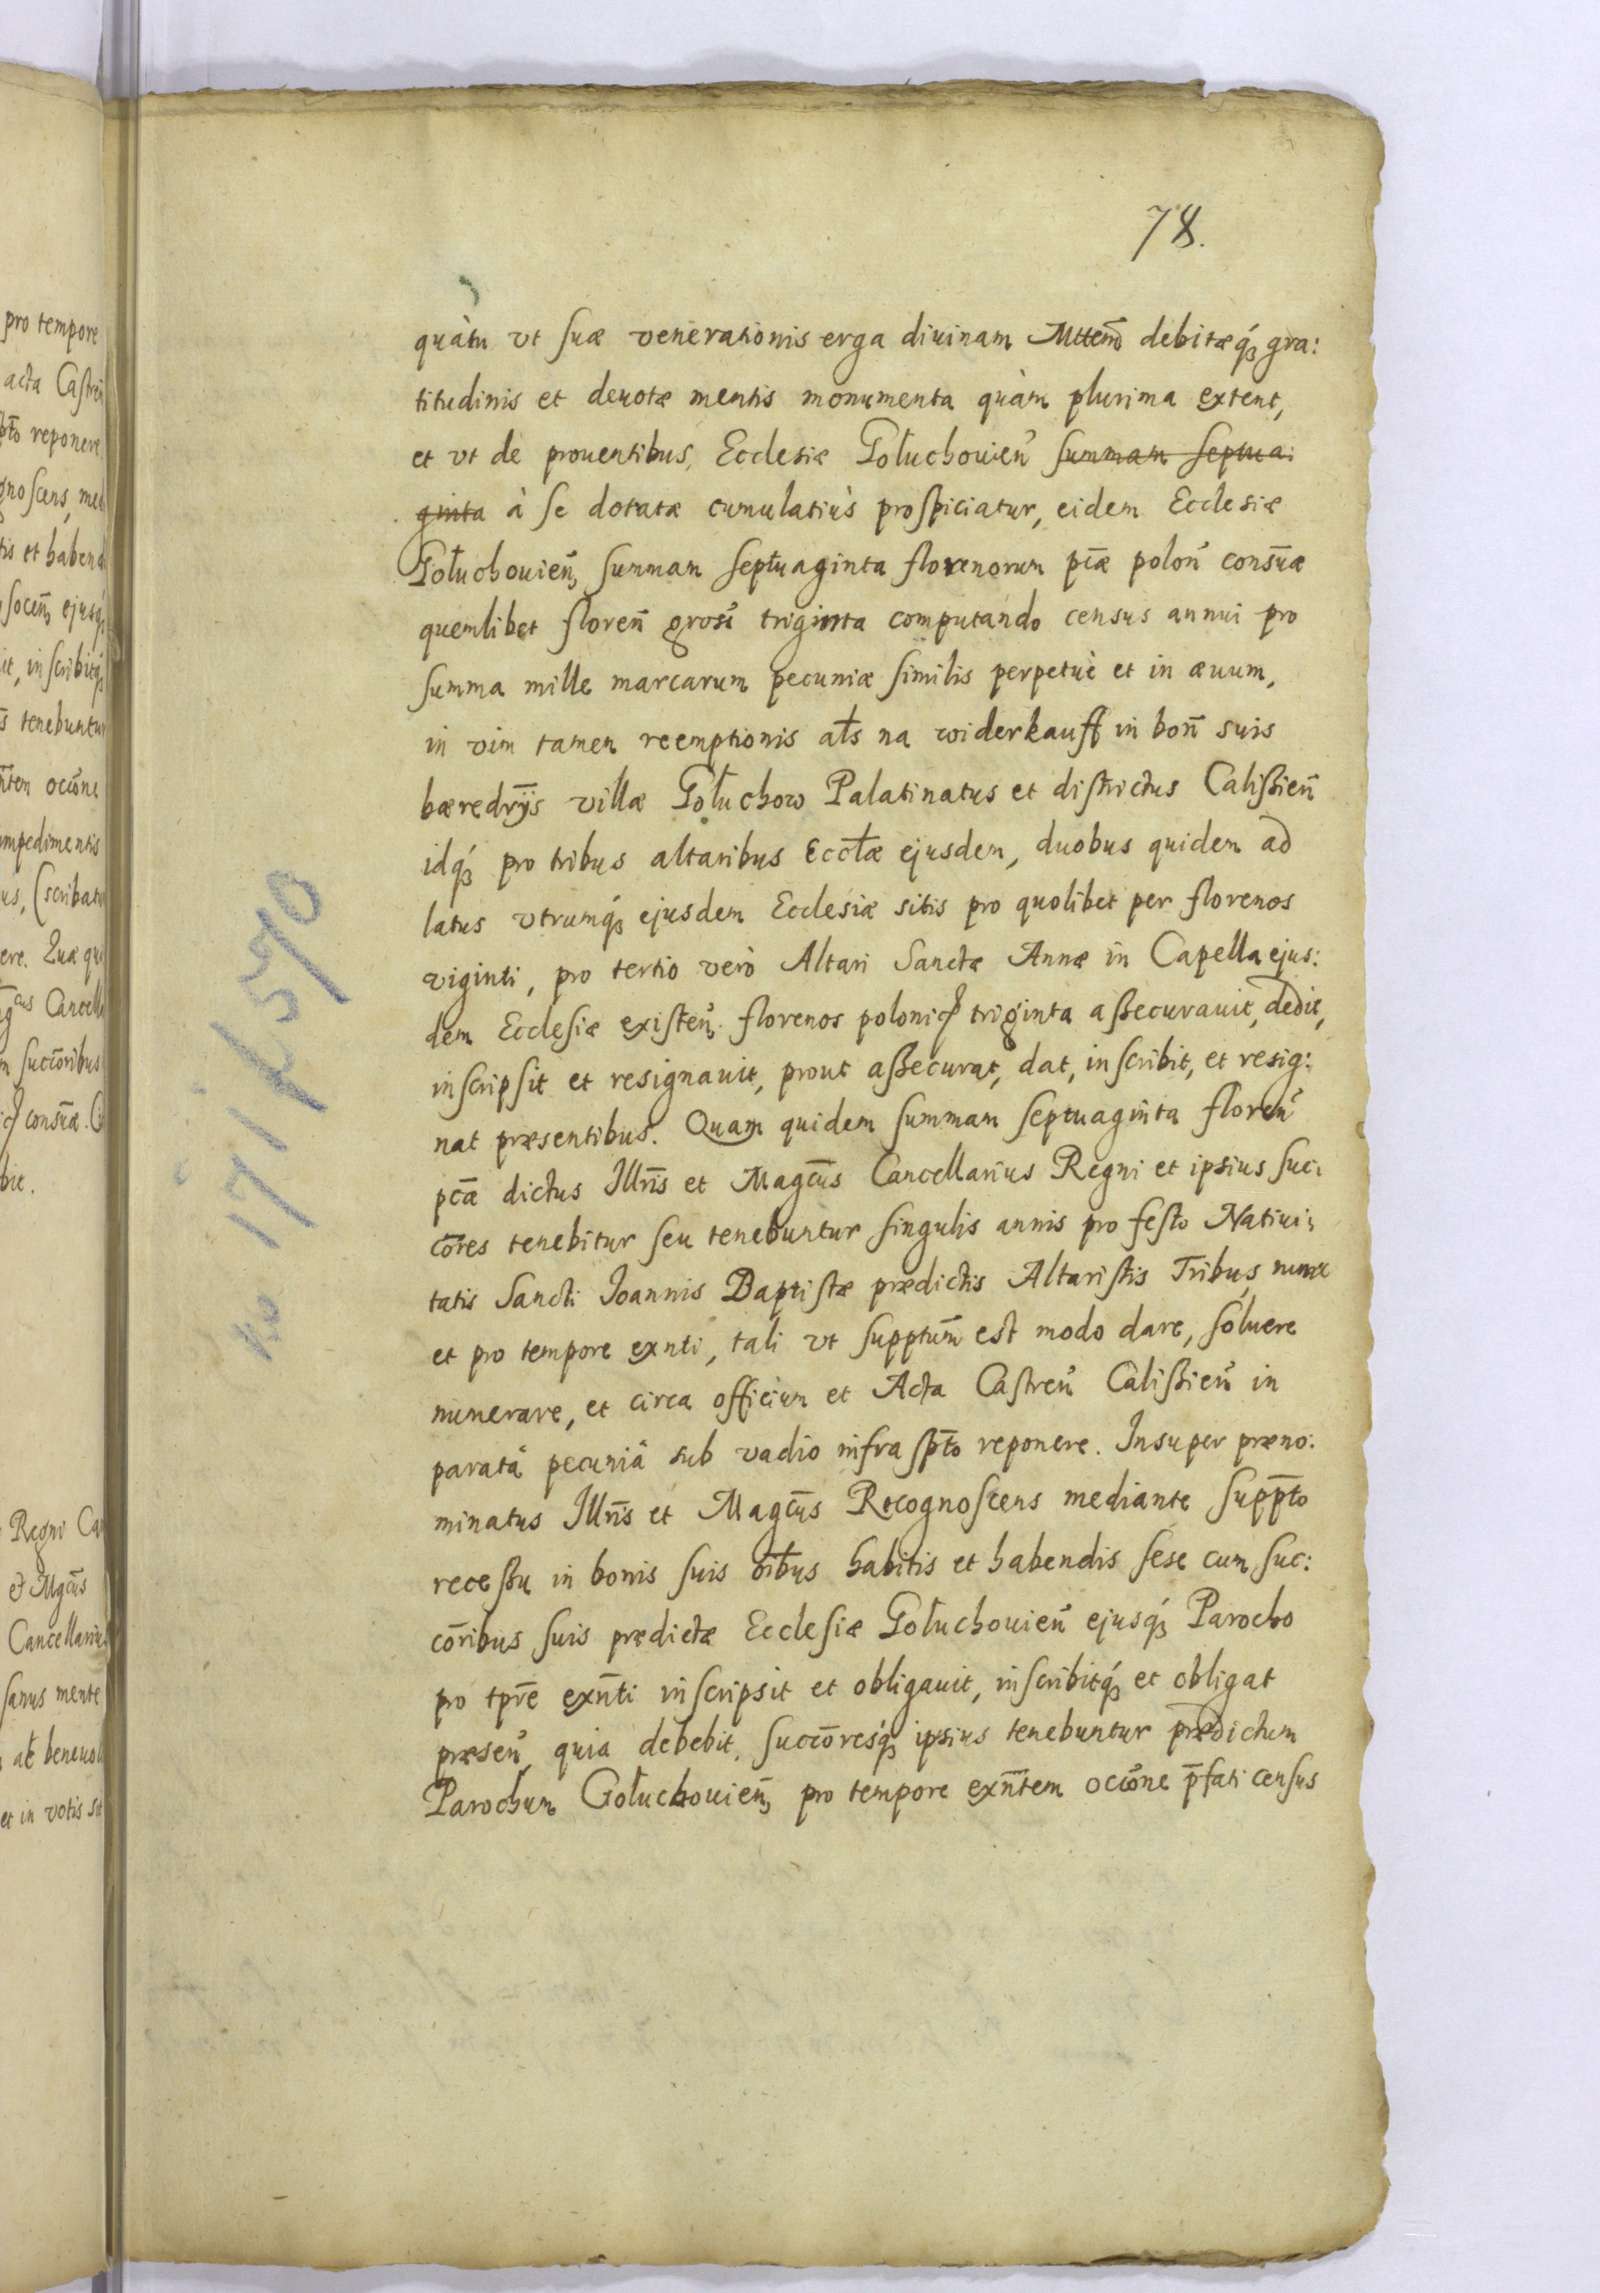 78.
quàm vt suæ venerationis erga diuinam Mttem debitæq́ꝫ gra:
titudinis et deuotæ mentis monumenta quàm plurima extent,
et vt de prouentibus Ecclesiæ Gołuchouien̄ summam septua:
ginta à se dotatæ cumulatiùs prospiciatur, eidem Ecclesiæ
Gołuchouien̄ summam septuaginta florenorum pc̄æ polon̄ consuæ
quemlibet floren̄ gross̄ triginta computando census annui pro
summa mille marcarum pecuniæ similis perpetuè et in æuum,
in vim tamen reemptionis als na widerkauff in bon̄ suis
hæredrijs villæ Gołuchow Palatinatus et districtus Calissien̄
idq́ꝫ pro tribus altaribus Eccłæ ejusdem, duobus quidem ad
latus vtrumq́ꝫ ejusdem Ecclesiæ sitis pro quolibet per florenos
viginti, pro tertio verò Altari Sanctæ Annæ in Capella ejus:
dem Ecclesiæ existen̄ florenos polonic̄ triginta assecurauit, dedit,
inscripsit et resignauit, prout assecurat, dat, inscribit, et resig:
nat præsentibus. Quam quidem summam septuaginta floren̄
pc̄æ dictus Illrīs et Magcūs Cancellarius Regni et ipsius suc:
cōres tenebitur seu tenebuntur singulis annis pro festo Natiui:
tatis Sancti Joannis Baptistæ prædictis Altaristis Tribus, nunc
et pro tempore exnti, tali vt supptum̄ est modo dare, soluere
numerare, et circa officium et Acta Castren̄ Calissien̄ in
paratâ pecuniâ sub vadio infra sp̄to reponere. Insuper præno:
minatus Illrīs et Magcūs Recognoscens mediante supp̄to
recessu in bonis suis oībus habitis et habendis sese cum suc:
cōribus suis prædictæ Ecclesiæ Gołuchouien̄ ejusq́ꝫ Parocho
pro tpr̄e exn̄ti inscripsit et obligauit, inscribitq́ꝫ et obligat
præsen̄, quia debebit, succōresq́ꝫ ipsius tenebuntur prædictum
Parochum Gołuchouien̄ pro tempore exn̄tem occōne p̄fati census